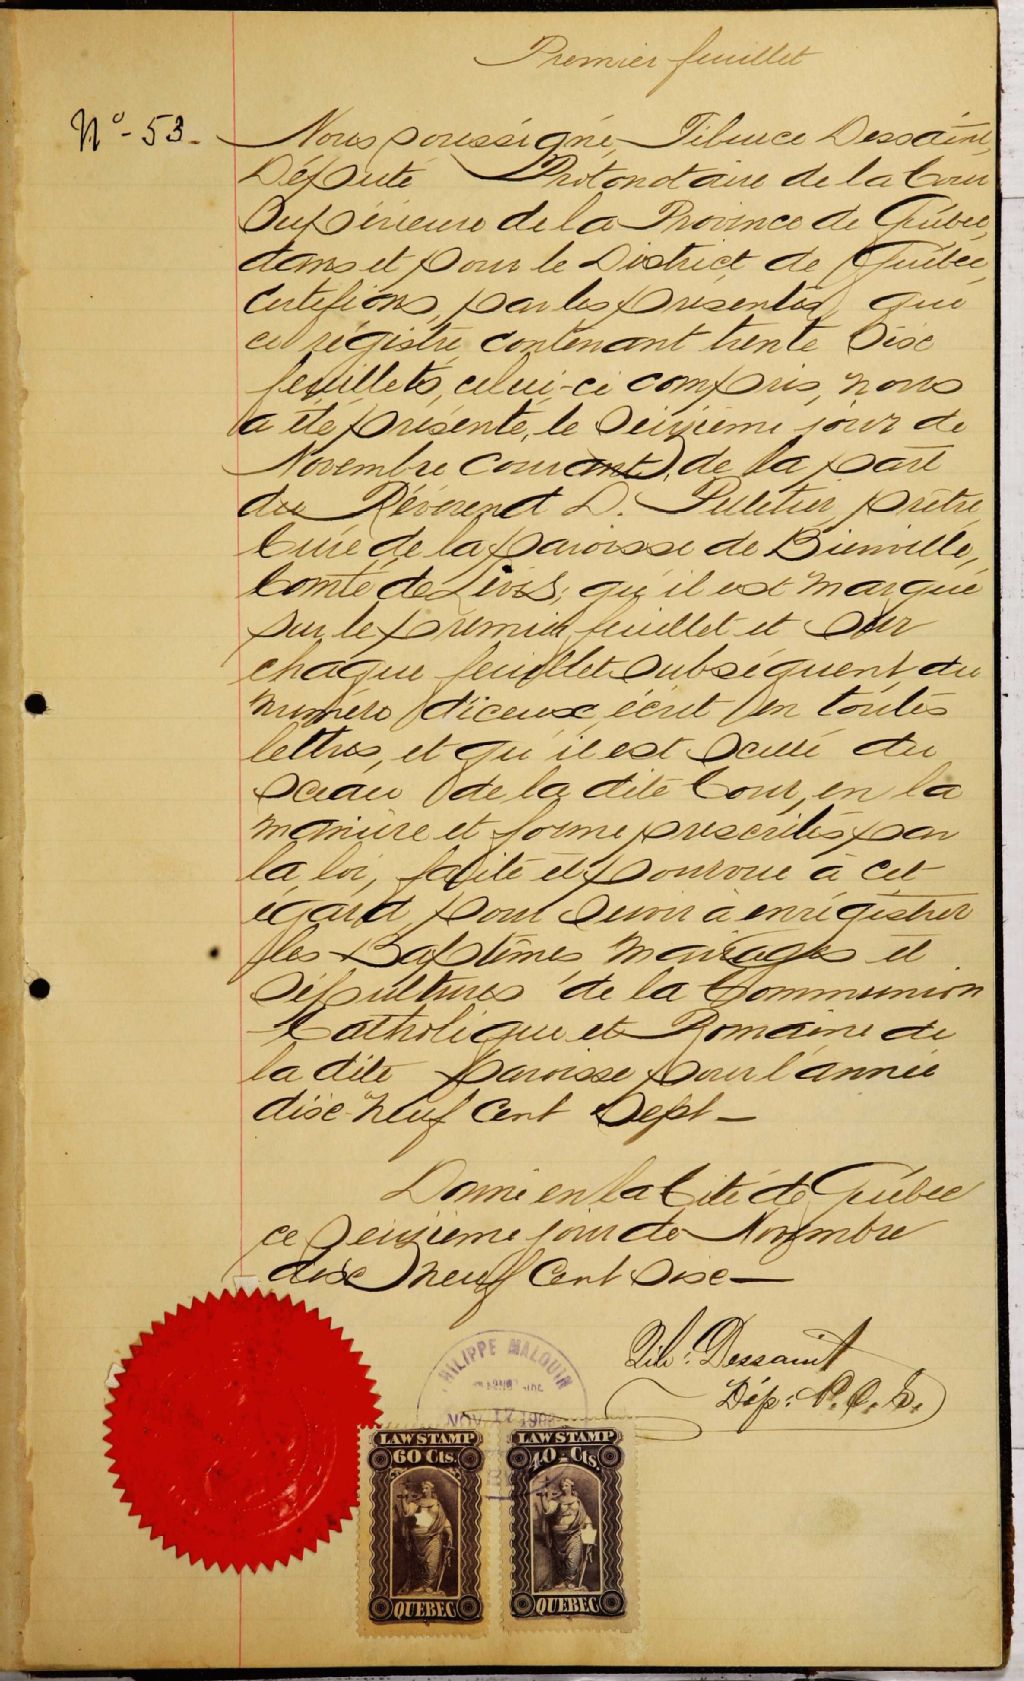 Premier feuillet
N° - 53 -
Nous soussigné, Tiburce Dessaint,
Député Protonotaire de la Cour
Supérieure de la Province de Québec,
dans et pour le District de Québec,
Certifions, par les présentes, que
ce régistre, contenant trente six
feuillets, celui-ci compris, nous
a été présenté, le seizième jour de
Novembre courant, de la part
du Révérend D. Pelletier, prêtre,
Curé de la paroisse de Bienville,
Comté de Lévis; qu'il est marqué
sur le premier feuillet et sur
chaque feuillet subséquent du
numéro d'iceux, écrit en toutes
lettres, et qu'il est scellé du
sceau de la dite Cour, en la
manière et forme prescrites par
la loi, faite et pourvue à cet
égard, pour servir à enrégistrer
les Baptêmes Mariages et
Sépultures de la Communion
Catholique et Romaine de
la dite paroisse pour l'année
dix-neuf cent sept -
Donné en la Cité de Québec
ce seizième jour de Novembre
dix neuf Cent six -
Tib: Dessaint
Dép: P. C. S.
PHILIPPE MALOUIN
NOV. 17 190
LAW STAMP
60 Cts.
QUEBEC
LAW STAMP
40 - Cts.
QUEBEC